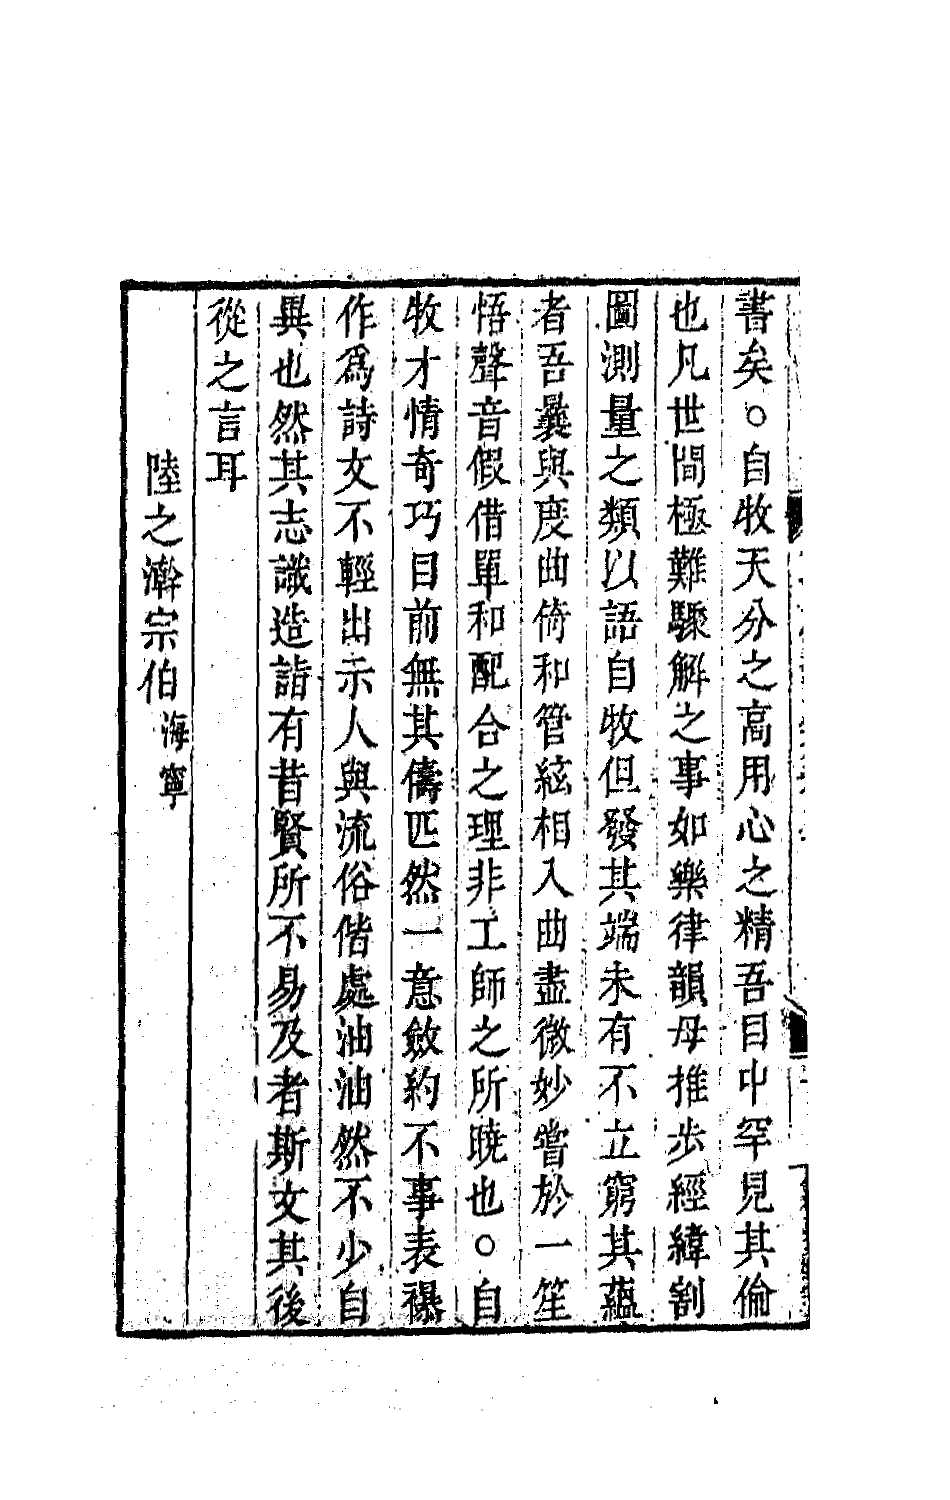 書矣○自牧天分之高用心之精吾目中罕見其倫
也凡世間極難驟解之事如樂律韻母推步經緯割
圜測量之類以語自牧但發其端未有不立窮其蘊
者吾彝與度曲倚和管絃相入曲盡微妙嘗於一笙
悟聲音假借單和配合之理非工師之所曉也○自
牧才情奇巧目前無其儔匹然一意斂約不事表襮
作爲詩文不輕出示人與流俗偕處油油然不少自
異也然其志識造詣有昔賢所不易及者斯文其後
從之言耳
陸之澣宗伯海寧